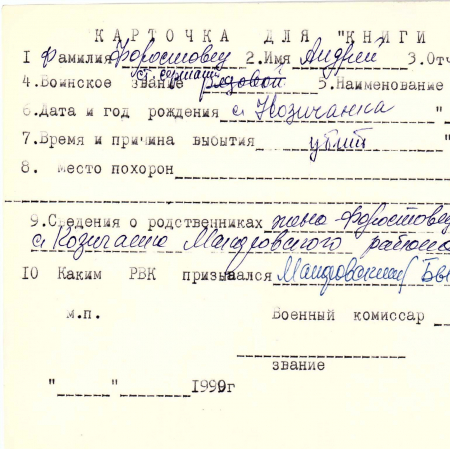 КАРТОЧКА ДЛЯ "КНИГИ
1 Фамилия Форостовец 2.Имя Андрей 3.Отч
ст. сержант
4.Воинское звание рядовой 5.Наименование
6.Дата и год рождения с. Козичанка "
7.Время и причина выбытия убит "
8. место похорон
9.Сведения о родственниках жена Форостовец
с. Козичанка района
10 Каким РВК призывался
м.п. Военный комиссар
звание
"____"________1990г